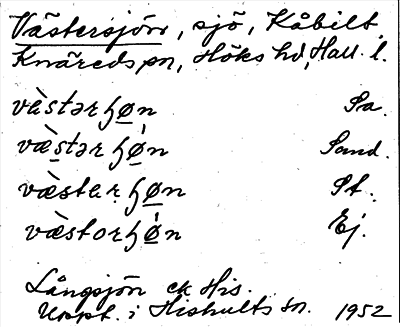 Västersjön, sjö, Kåbilt
Knäreds sn, Höks hd, Hall. l.
væ̀stərɧø̱n Sa.
væ̱̀stərɧǿ̱n Sand.
væ̀stɐrɧø̱n St.
væ̀storɧǿ̱n Ej.
Långsjön ek His.
Uppt. i Hishults sn. 1952